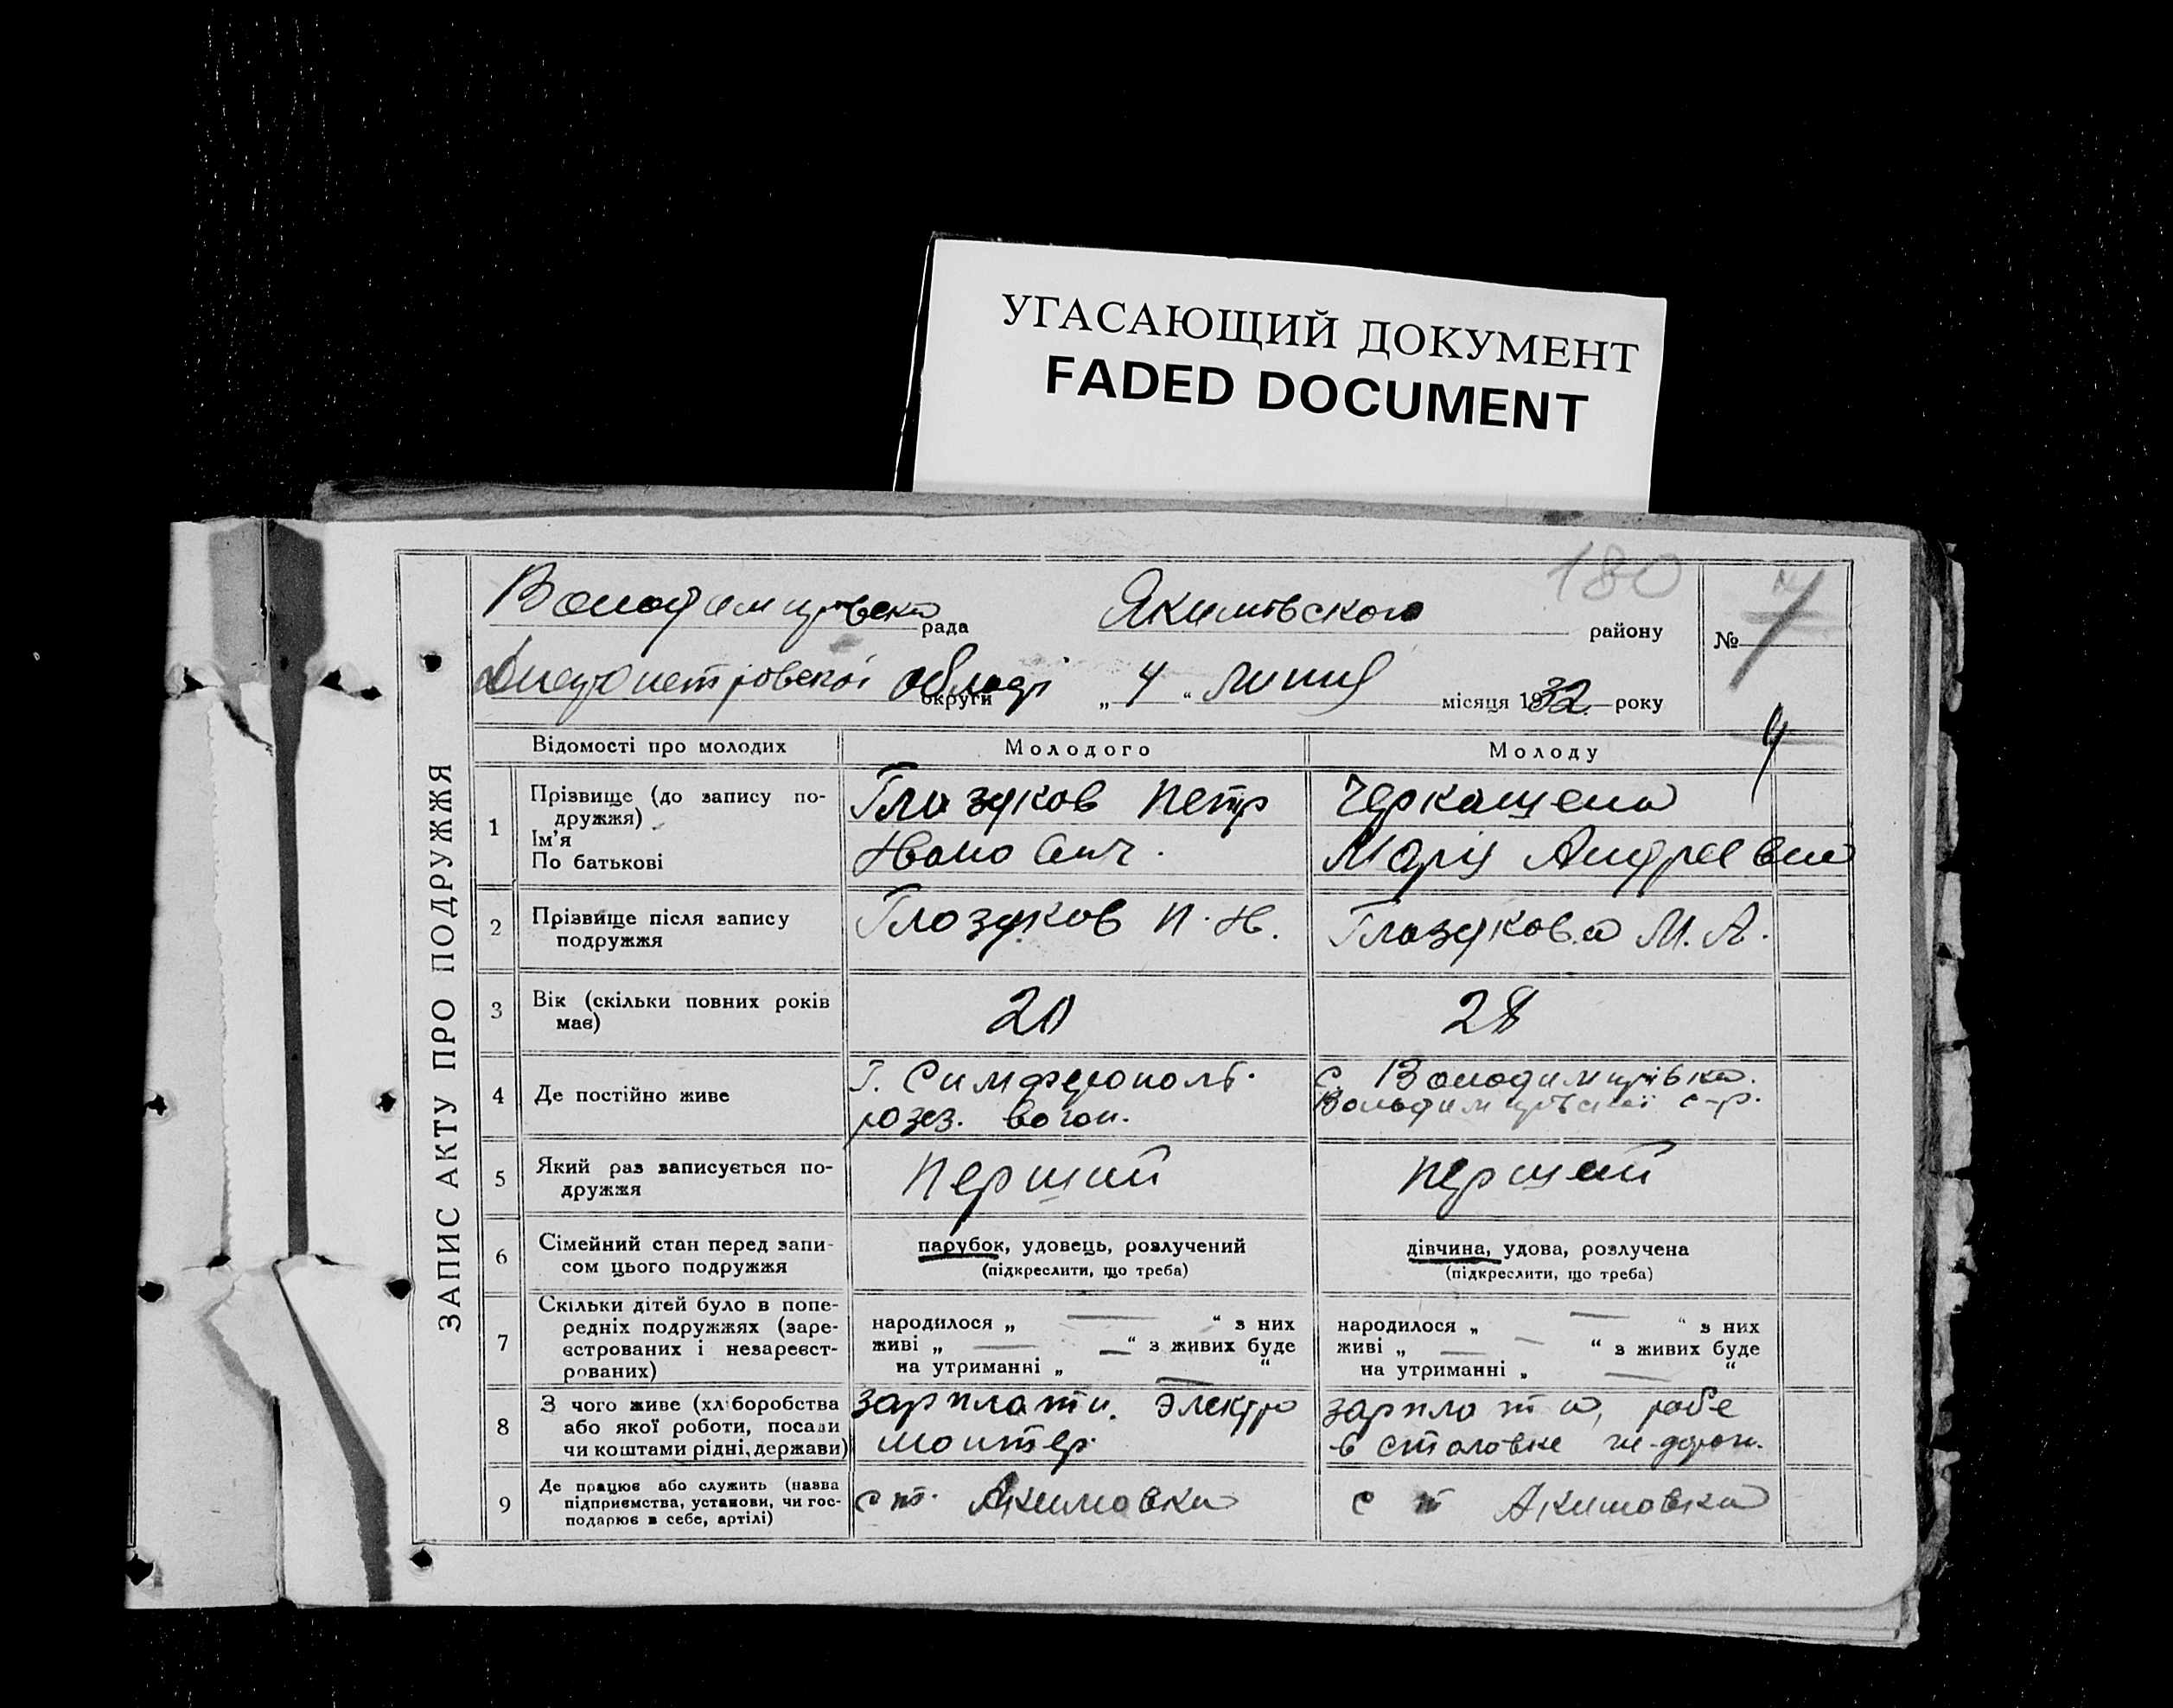 УГАСАЮЩИЙ ДОКУМЕНТ
FADED DOCUMENT
180
ЗАПИС АКТУ ПРО ПОДРУЖЖЯ
Володимирівська рада Якимівського району №
Дніпропетровської області округи „ 4 “ липня місяця 1932 року
Відомості про молодих Молодого Молоду
1 Прізвище (до запису по-
дружжя)
Ім'я
По батькові
Глазуков Петр
Иванович.
Черкашена
Марія Андреевна
2 Прізвище після запису
подружжя
Глазуков П. И.
Глазукова М. А.
3 Вік (скільки повних років
має)
28
4 Де постійно живе
г. Симферополь.
розез. вагон.
с. Володимирівка.
Володимирівської с-р.
5 Який раз записується по-
дружжя
Перший
Перший
6 Сімейний стан перед запи-
сом цього подружжя
парубок, удовець, розлучений
(підкреслити, що треба)
дівчина, удова, розлучена
(підкреслити, що треба)
7 Скільки дітей було в попе-
редніх подружжях (заре-
єстрованих і незареєст-
рованих)
народилося „ — “ з них
живі „ — “ з живих буде
на утриманні „ — “
народилося „ — “ з них
живі „ — “ з живих буде
на утриманні „ — “
8 З чого живе (хліборобства
або якої роботи, посади
чи коштами рідні, держави)
зарплати. Электро
монтер
зарплота, робе
в столовке
9 Де працює або служить (назва
підприємства, установи, чи гос-
подарює в себе, артілі)
ст. Акимовка
ст Акимовка